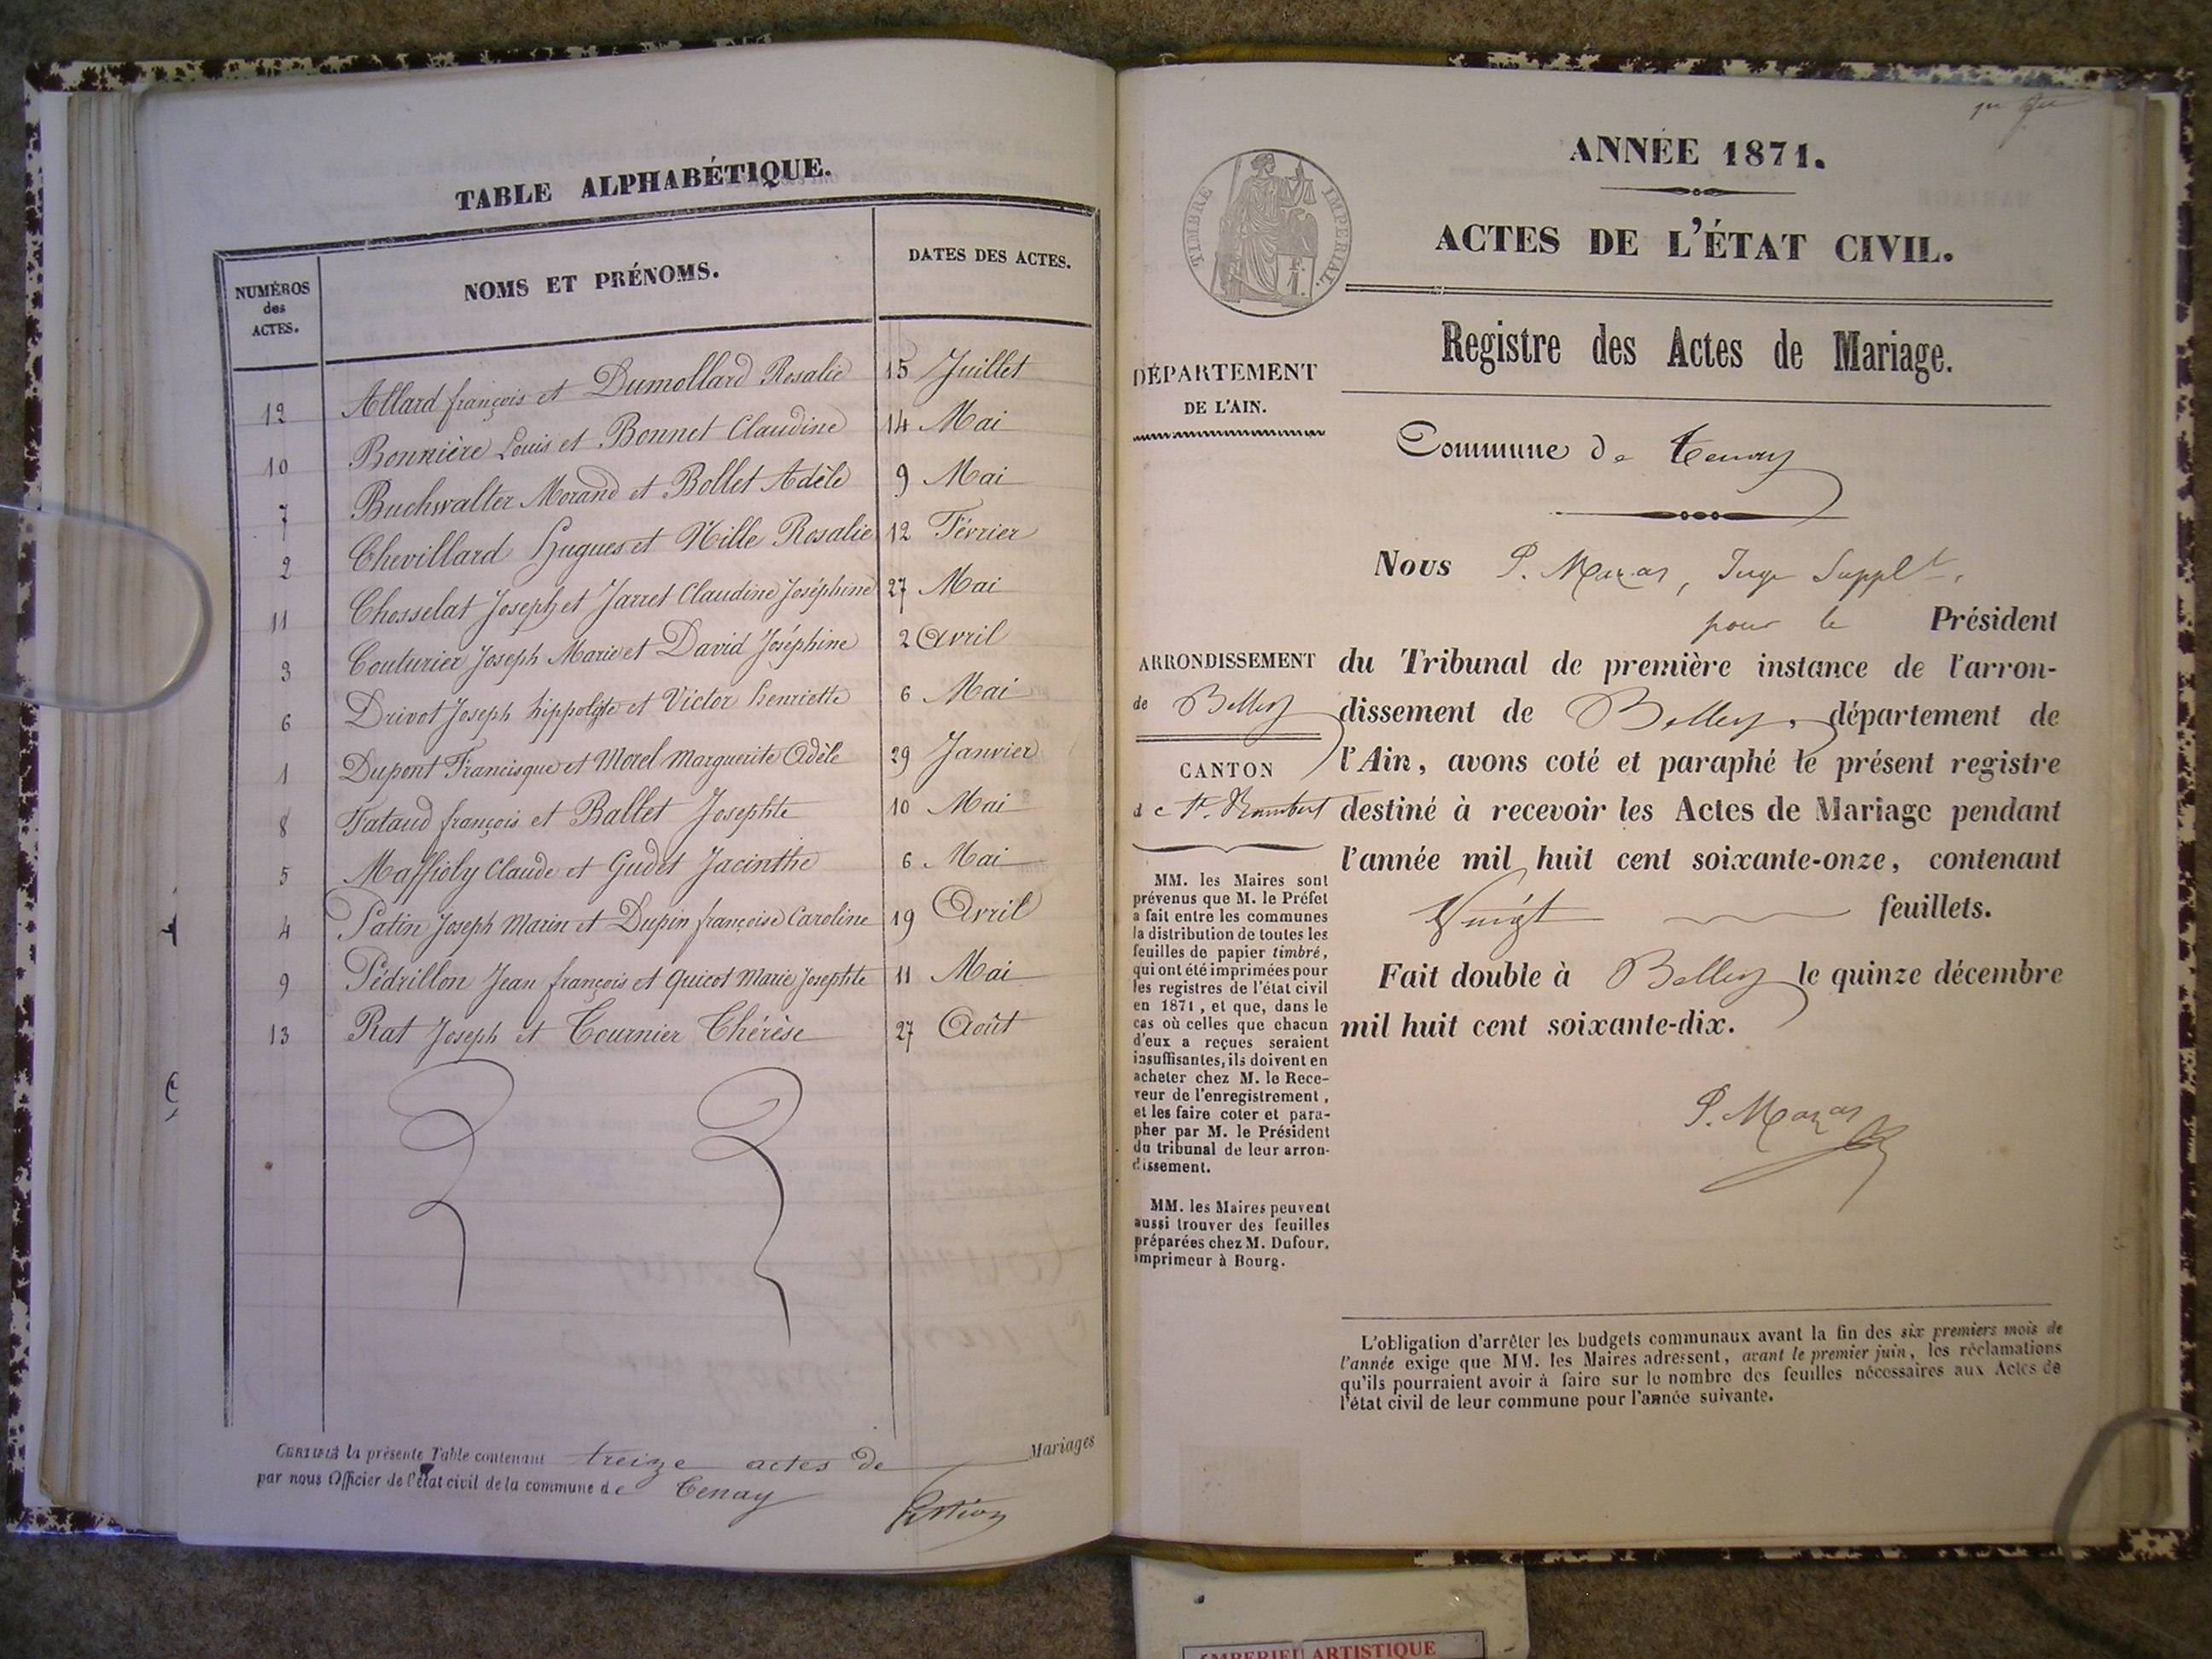 TABLE ALPHABÉTIQUE.
NUMÉROS des ACTES.
NOMS ET PRÉNOMS.
DATES DES ACTES.
12 Allard françois et Dumollard Rosalie 15 Juillet
10 Bonnière Louis et Bonnet Claudine 14 Mai
7 Buchwalter Morand et Bollet Adèle 9 Mai
2 Chevillard Hugues et Mille Rosalie 12 Février
11 Chosselat Joseph et Jarret Claudine Joséphine 27 Mai
3 Couturier Joseph Marie et David Joséphine 2 Avril
6 Drivot Joseph hippolyte et Victor henriette 6 Mai
1 Dupont Francisque et Morel Marguerite Adèle 29 Janvier
8 Fataud françois et Ballet Josephte 10 Mai
5 Maffioly Claude et Gudet Jacinthe 6 Mai
4 Patin Joseph Marin et Dupin françoise Caroline 19 Avril
9 Pédrillon Jean françois et Quicot Marie Josephte 11 Mai
13 Rat Joseph et Tournier Thérèse 27 Août
CERTIFIÉ la présente Table contenant treize actes de Mariages
par nous Officier de l'état civil de la commune de Tenay
ANNÉE 1871.
ACTES DE L'ÉTAT CIVIL.
TIMBRE IMPÉRIAL.
Registre des Actes de Mariage.
DÉPARTEMENT
DE L'AIN.
Commune de Tenay
Nous P. Mazas, Juge Supplt,
pour le Président
ARRONDISSEMENT
de Belley
CANTON
de St. Rambert
du Tribunal de première instance de l'arron-
dissement de Belley, département de
l'Ain, avons coté et paraphé le présent registre
destiné à recevoir les Actes de Mariage pendant
l'année mil huit cent soixante-onze, contenant
Vingt feuillets.
Fait double à Belley le quinze décembre
mil huit cent soixante-dix.
P. Mazas
MM. les Maires sont
prévenus que M. le Préfet
a fait entre les communes
la distribution de toutes les
feuilles de papier timbré,
qui ont été imprimées pour
les registres de l'état civil
en 1871, et que, dans le
cas où celles que chacun
d'eux a reçues seraient
insuffisantes, ils doivent en
acheter chez M. le Rece-
veur de l'enregistrement,
et les faire coter et para-
pher par M. le Président
du tribunal de leur arron-
dissement.
MM. les Maires peuvent
aussi trouver des feuilles
préparées chez M. Dufour,
imprimeur à Bourg.
L'obligation d'arrêter les budgets communaux avant la fin des six premiers mois de
l'année exige que MM. les Maires adressent, avant le premier juin, les réclamations
qu'ils pourraient avoir à faire sur le nombre des feuilles nécessaires aux Actes de
l'état civil de leur commune pour l'année suivante.
ARTISTIQUE